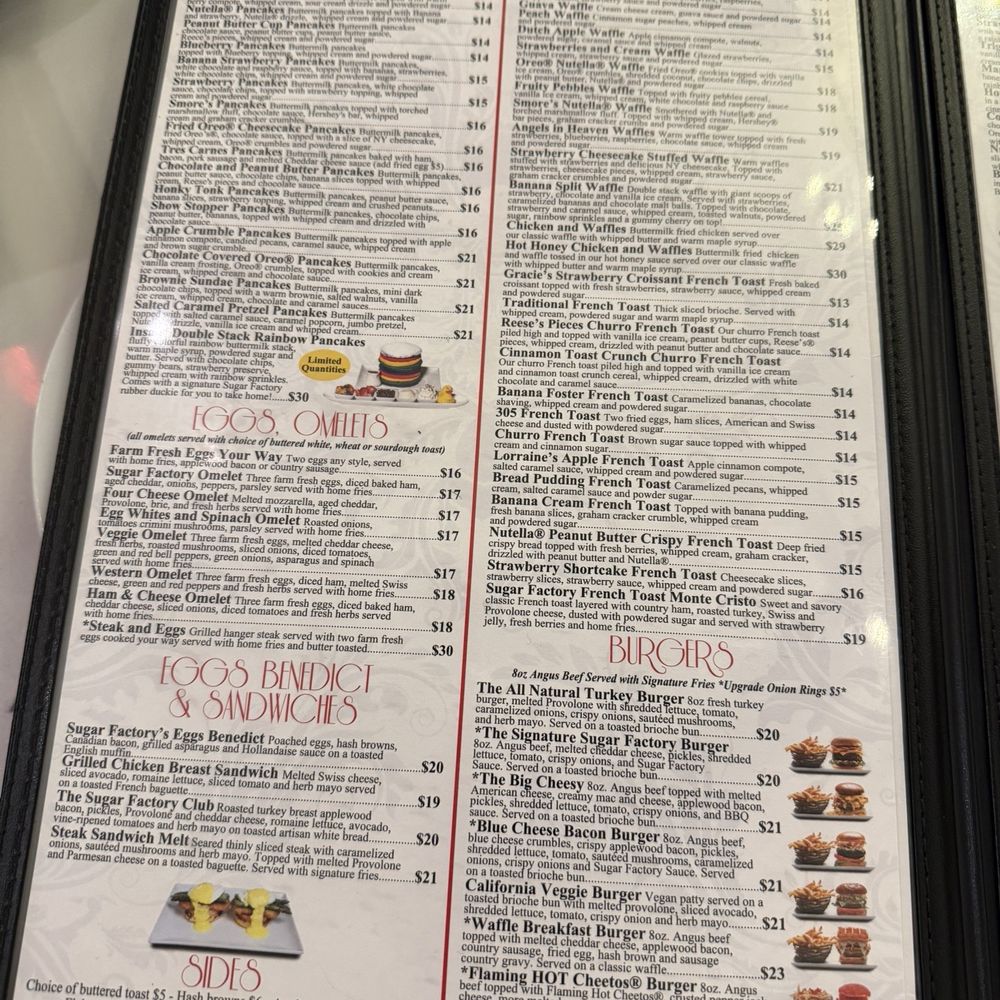 berry compote, whipped cream, sour cream drizzle and powdered sugar
Nutella® Pancakes Buttermilk pancakes topped with Banana $14
and strawberry, Nutella® drizzle, whipped cream and powdered sugar
Peanut Butter Cup Pancakes Buttermilk pancakes $14
chocolate sauce, peanut butter cups, peanut butter sauce,
Reese's pieces, whipped cream and powdered sugar
Blueberry Pancakes Buttermilk pancakes $14
topped with Blueberry topping, whipped cream and powdered sugar
Banana Strawberry Pancakes Buttermilk pancakes, $14
chocolate sauce and raspberry sauce, topped with bananas, strawberries,
white chocolate chips, whipped cream and powdered sugar
Strawberry Pancakes Buttermilk pancakes, white chocolate $15
sauce, chocolate chips, topped with strawberry topping, whipped
cream and powdered sugar
Smore's Pancakes Buttermilk pancakes topped with torched $15
marshmallow fluff, chocolate sauce, Hershey's bar, whipped
cream and graham cracker crumbles
Fried Oreo® Cheesecake Pancakes Buttermilk pancakes, $16
fried Oreo's®, chocolate sauce, topped with a slice of NY cheesecake,
whipped cream, Oreo® crumbles and powdered sugar
Tres Carnes Pancakes Buttermilk pancakes baked with ham, $16
bacon, pork sausage and melted Cheddar cheese sauce (add fried egg $5).....$16
Chocolate and Peanut Butter Pancakes Buttermilk pancakes,
peanut butter sauce, chocolate chips, banana slices topped with whipped
cream, Reese's pieces and chocolate sauce
Honky Tonk Pancakes Buttermilk pancakes, peanut butter sauce, $16
banana slices, strawberry topping, whipped cream and crushed peanuts
Show Stopper Pancakes Buttermilk pancakes, chocolate chips, $16
peanut butter, bananas, topped with whipped cream and drizzled with
chocolate sauce
Apple Crumble Pancakes Buttermilk pancakes topped with apple $16
cinnamon compote, candied pecans, caramel sauce, whipped cream
and brown sugar crumble
Chocolate Covered Oreo® Pancakes Buttermilk pancakes, $21
vanilla cream frosting, Oreo® crumbles, topped with cookies and cream
ice cream, whipped cream and chocolate sauce
Brownie Sundae Pancakes Buttermilk pancakes, mini dark $21
chocolate chips, topped with a warm brownie, salted walnuts, vanilla
ice cream, whipped cream, chocolate and caramel sauces
Salted Caramel Pretzel Pancakes Buttermilk pancakes $21
topped with salted caramel sauce, caramel popcorn, jumbo pretzel,
drizzle, vanilla ice cream and whipped cream
Double Stack Rainbow Pancakes $21
fluffy colorful rainbow buttermilk stack,
warm maple syrup, powdered sugar and
butter. Served with chocolate chips,
gummy bears, strawberry preserve,
whipped cream with rainbow sprinkles.
Comes with a signature Sugar Factory
rubber duckie for you to take home!.....$30
Limited
Quantities
EGGS, OMELETS
(all omelets served with choice of buttered white, wheat or sourdough toast)
Farm Fresh Eggs Your Way Two eggs any style, served
with home fries, applewood bacon or country sausage $16
Sugar Factory Omelet Three farm fresh eggs, diced baked ham,
aged cheddar, onions, peppers, parsley served with home fries $17
Four Cheese Omelet Melted mozzarella, aged cheddar,
Provolone, brie, and fresh herbs served with home fries $17
Egg Whites and Spinach Omelet Roasted onions,
tomatoes crimini mushrooms, parsley served with home fries $17
Veggie Omelet Three farm fresh eggs, melted cheddar cheese,
fresh herbs, roasted mushrooms, sliced onions, diced tomatoes,
green and red bell peppers, green onions, asparagus and spinach
served with home fries $17
Western Omelet Three farm fresh eggs, diced ham, melted Swiss
cheese, green and red peppers and fresh herbs served with home fries $18
Ham & Cheese Omelet Three farm fresh eggs, diced baked ham,
cheddar cheese, sliced onions, diced tomatoes and fresh herbs served
with home fries $18
*Steak and Eggs Grilled hanger steak served with two farm fresh
eggs cooked your way served with home fries and butter toasted $30
EGGS BENEDICT
& SANDWICHES
Sugar Factory's Eggs Benedict Poached eggs, hash browns,
Canadian bacon, grilled asparagus and Hollandaise sauce on a toasted
English muffin $20
Grilled Chicken Breast Sandwich Melted Swiss cheese,
sliced avocado, romaine lettuce, sliced tomato and herb mayo served
on a toasted French baguette $19
The Sugar Factory Club Roasted turkey breast applewood
bacon, pickles, Provolone and cheddar cheese, romaine lettuce, avocado,
vine-ripened tomatoes and herb mayo on toasted artisan white bread $20
Steak Sandwich Melt Seared thinly sliced steak with caramelized
onions, sautéed mushrooms and herb mayo. Topped with melted Provolone
and Parmesan cheese on a toasted baguette. Served with signature fries $21
SIDES
Choice of buttered toast $5 - Hash browns
Guava Waffle Cream cheese cream, guava sauce and powdered sugar $14
Peach Waffle Cinnamon sugar peaches, whipped cream $14
Dutch Apple Waffle Apple cinnamon compote, walnuts, $14
powdered sugar, caramel sauce and whipped cream
Strawberries and Cream Waffle Glazed strawberries, $14
strawberry sauce, whipped cream and powdered sugar
Oreo® Nutella® Waffle Fried Oreo® cookies topped with vanilla $15
ice cream, Oreo® crumbles, shredded coconut, chocolate chips, drizzled
with peanut butter, Nutella® and powdered sugar
Fruity Pebbles Waffle Topped with fruity pebbles cereal, $18
vanilla ice cream, whipped cream, white chocolate and raspberry sauce
Smore's Nutella® Waffle Smothered with Nutella® and $18
marshmallow fluff. Topped with whipped cream, Hershey®
bar pieces, graham cracker crumbs and powdered sugar
Angels in Heaven Waffles Warm waffle tower topped with fresh $19
strawberries, blueberries, raspberries, chocolate sauce, whipped cream
and powdered sugar
Strawberry Cheesecake Stuffed Waffle Warm waffles $19
stuffed with strawberries and delicious NY cheesecake. Topped with
strawberries, cheesecake pieces, whipped cream, strawberry sauce,
graham cracker crumbles and powdered sugar
Banana Split Waffle Double stack waffle with giant scoops of $21
strawberry, chocolate and vanilla ice cream. Served with strawberries,
caramelized bananas and chocolate malt balls. Topped with chocolate,
strawberry and caramel sauce, whipped cream, toasted walnuts, powdered
sugar, rainbow sprinkles and a gummy cherry on top!
Chicken and Waffles Buttermilk fried chicken served over
our classic waffle with whipped butter and warm maple syrup $29
Hot Honey Chicken and Waffles Buttermilk fried chicken
and waffle tossed in our hot honey sauce served over our classic waffle
with whipped butter and warm maple syrup $30
Gracie's Strawberry Croissant French Toast Fresh baked
croissant topped with fresh strawberries, strawberry sauce, whipped cream
and powdered sugar $13
Traditional French Toast Thick sliced brioche. Served with
whipped cream, powdered sugar and warm maple syrup $14
Reese's Pieces Churro French Toast Our churro French toast
piled high and topped with vanilla ice cream, peanut butter cups, Reese's®
pieces, whipped cream, drizzled with peanut butter and chocolate sauce $14
Cinnamon Toast Crunch Churro French Toast
Our churro French toast piled high and topped with vanilla ice cream
and cinnamon toast crunch cereal, whipped cream, drizzled with white
chocolate and caramel sauce $14
Banana Foster French Toast Caramelized bananas, chocolate
shaving, whipped cream and powdered sugar $14
305 French Toast Two fried eggs, ham slices, American and Swiss
cheese and dusted with powdered sugar $14
Churro French Toast Brown sugar sauce topped with whipped
cream and cinnamon sugar $14
Lorraine's Apple French Toast Apple cinnamon compote,
salted caramel sauce, whipped cream and powdered sugar $15
Bread Pudding French Toast Caramelized pecans, whipped
cream, salted caramel sauce and powder sugar $15
Banana Cream French Toast Topped with banana pudding,
fresh banana slices, graham cracker crumble, whipped cream
and powdered sugar $15
Nutella® Peanut Butter Crispy French Toast Deep fried
crispy bread topped with fresh berries, whipped cream, graham cracker,
drizzled with peanut butter and Nutella® $15
Strawberry Shortcake French Toast Cheesecake slices,
strawberry slices, strawberry sauce, whipped cream and powdered sugar $16
Sugar Factory French Toast Monte Cristo Sweet and savory
classic French toast layered with country ham, roasted turkey, Swiss and
Provolone cheese, dusted with powdered sugar and served with strawberry
jelly, fresh berries and home fries $19
BURGERS
8oz Angus Beef Served with Signature Fries *Upgrade Onion Rings $5*
The All Natural Turkey Burger 8oz fresh turkey
burger, melted Provolone with shredded lettuce, tomato,
caramelized onions, crispy onions, sautéed mushrooms,
and herb mayo. Served on a toasted brioche bun $20
*The Signature Sugar Factory Burger
8oz. Angus beef, melted cheddar cheese, pickles, shredded
lettuce, tomato, crispy onions, and Sugar Factory
Sauce. Served on a toasted brioche bun $20
*The Big Cheesy 8oz. Angus beef topped with melted
American cheese, creamy mac and cheese, applewood bacon,
pickles, shredded lettuce, tomato, crispy onions, and BBQ
sauce. Served on a toasted brioche bun. $21
*Blue Cheese Bacon Burger 8oz. Angus beef,
blue cheese crumbles, crispy applewood bacon, pickles,
shredded lettuce, tomato, sautéed mushrooms, caramelized
onions, crispy onions and Sugar Factory Sauce. Served
on a toasted brioche bun $21
California Veggie Burger Vegan patty served on a
toasted brioche bun with melted provolone, sliced avocado,
shredded lettuce, tomato, crispy onion and herb mayo $21
*Waffle Breakfast Burger 8oz. Angus beef
topped with melted cheddar cheese, applewood bacon,
country sausage, fried egg, hash brown and sausage
country gravy. Served on a classic waffle $23
*Flaming HOT Cheetos® Burger 8oz. Angus
beef topped with Flaming Hot Cheetos®